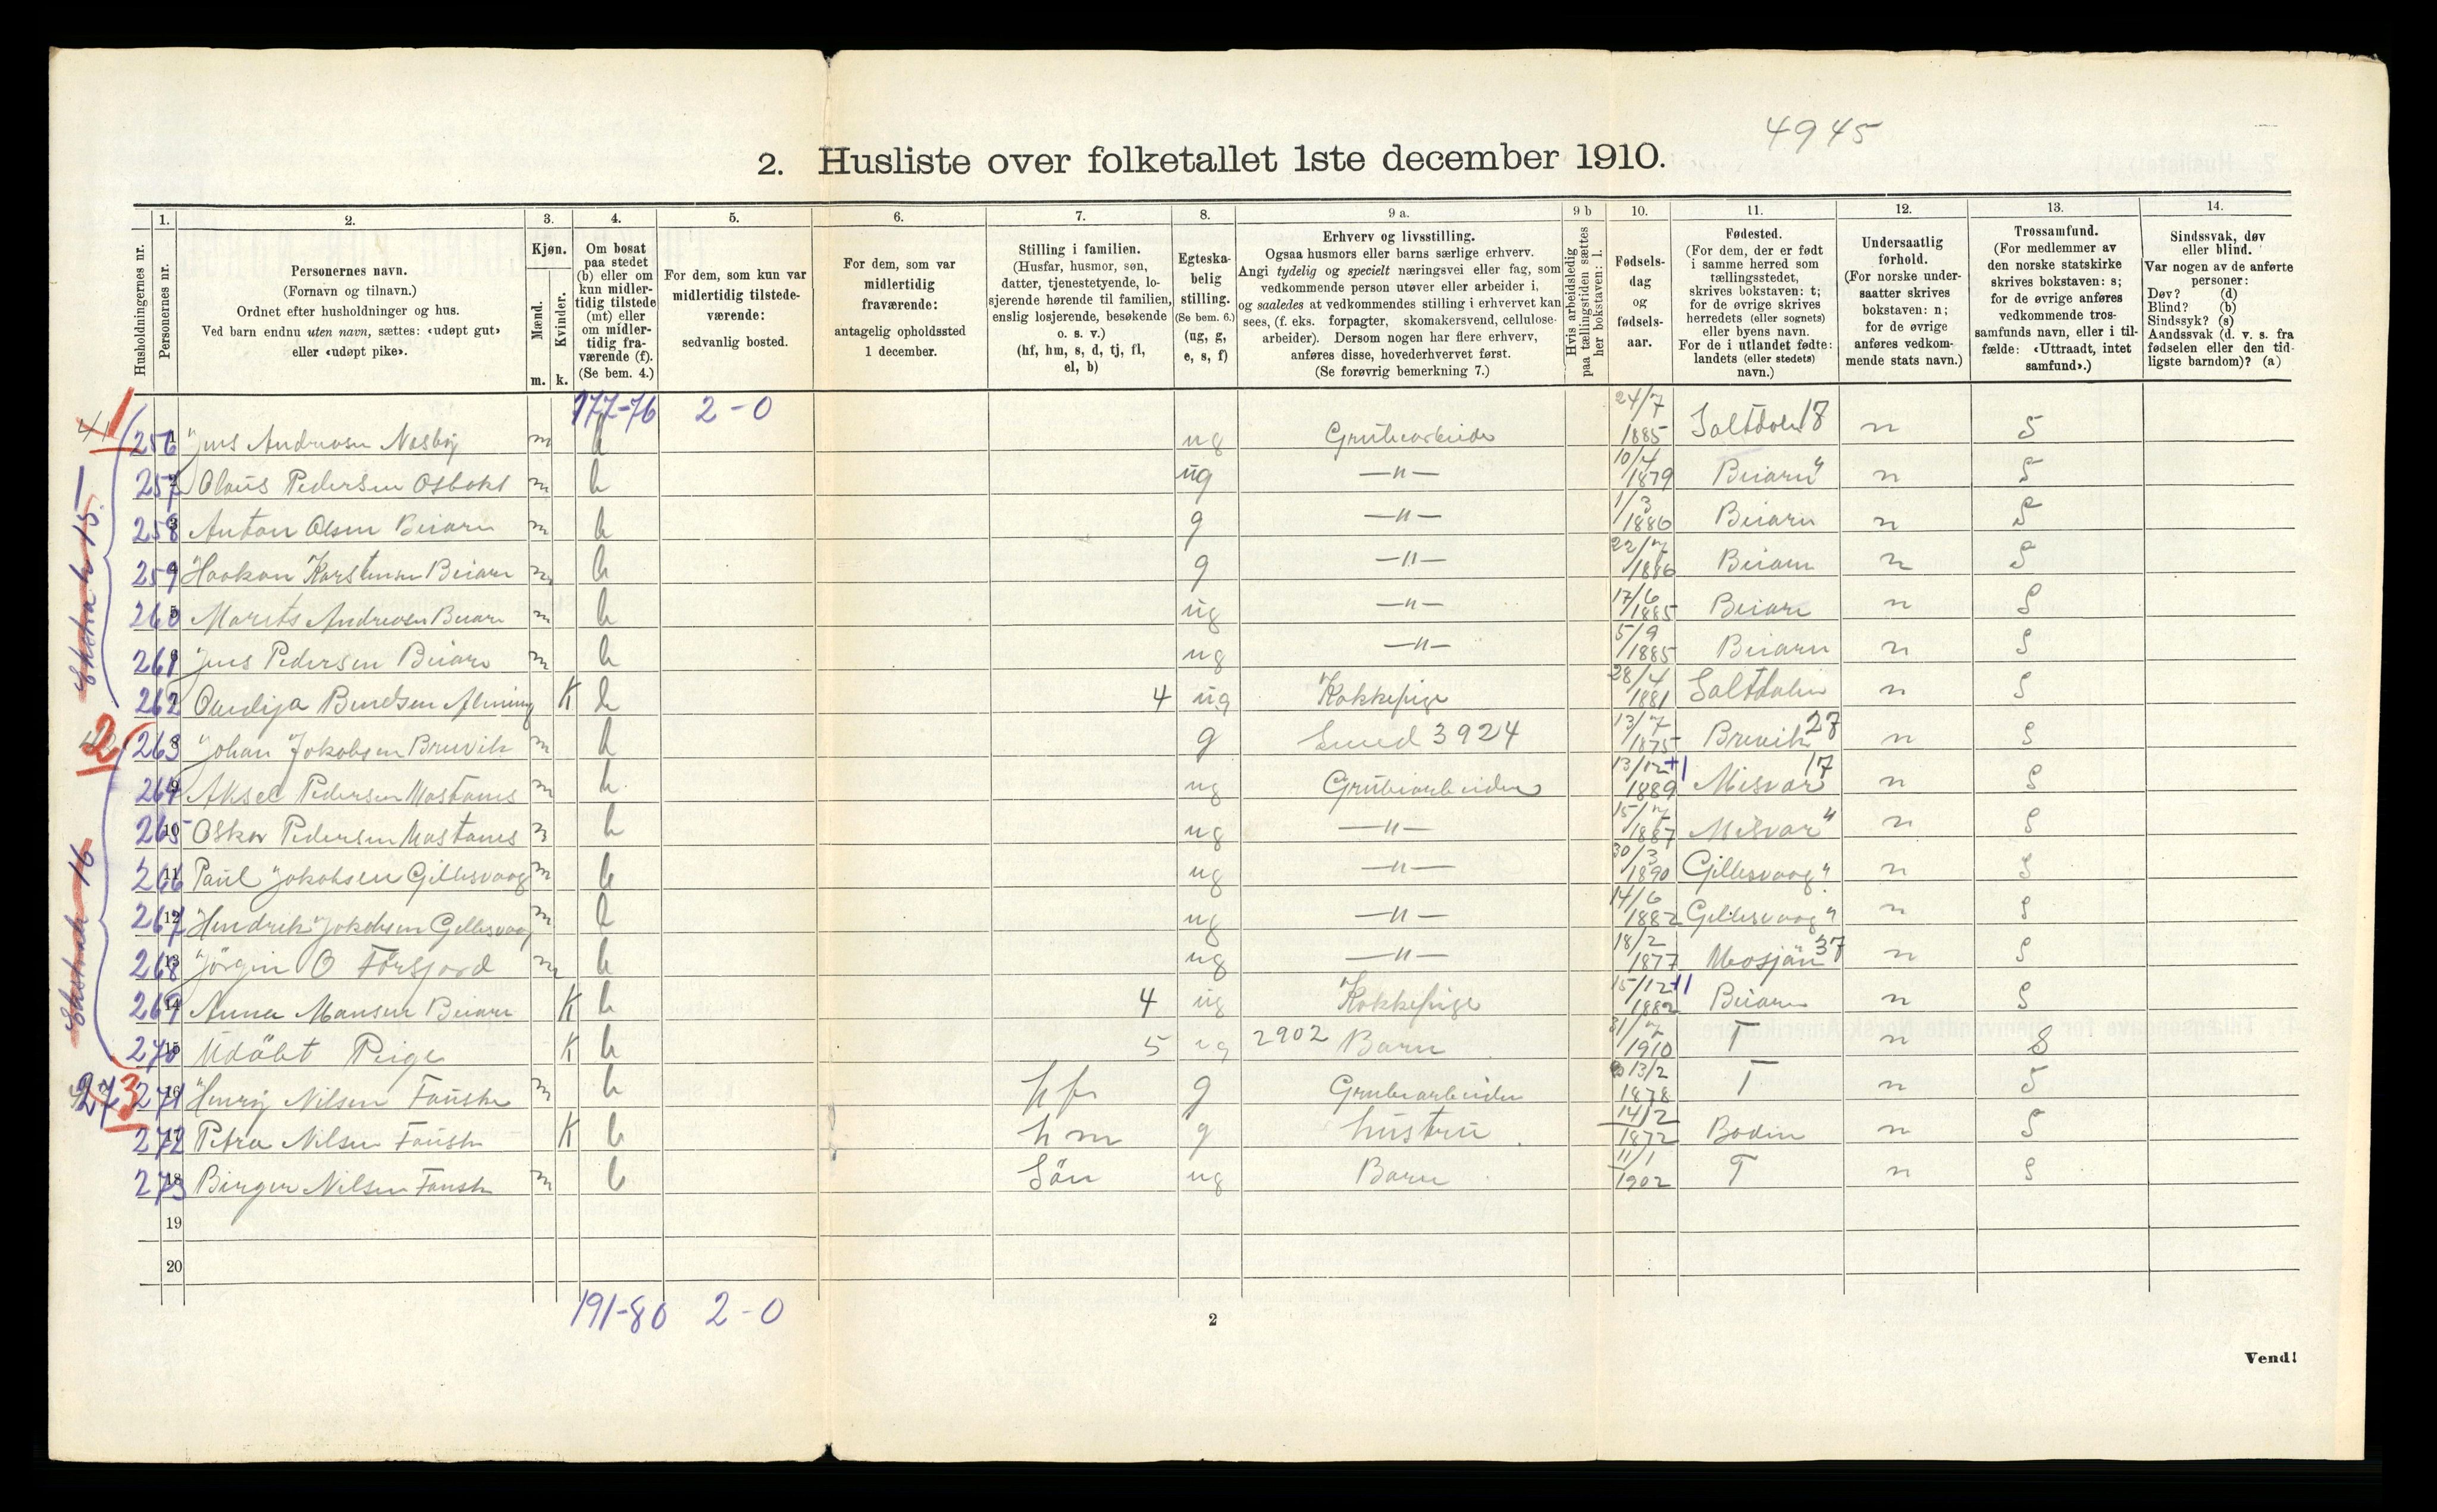 4945
2. Husliste over folketallet 1ste december 1910.
1. 2. 3. 4. 5. 6. 7. 8. 9 a. 9 b 10. 11. 12. 13. 14.
Husholdningernes nr.
Personernes nr.
Personernes navn.
(Fornavn og tilnavn.)
Ordnet efter husholdninger og hus.
Ved barn endnu uten navn, sættes: «udøpt gut»
eller «udøpt pike».
Kjøn.
Mænd.
Kvinder.
m. k.
Om bosat
paa stedet
(b) eller om
kun midler-
tidig tilstede
(mt) eller
om midler-
tidig fra-
værende (f).
(Se bem. 4.)
For dem, som kun var
midlertidig tilstede-
værende:
sedvanlig bosted.
For dem, som var
midlertidig
fraværende:
antagelig opholdssted
1 december.
Stilling i familien.
(Husfar, husmor, søn,
datter, tjenestetyende, lo-
sjerende hørende til familien,
enslig losjerende, besøkende
o. s. v.)
(hf, hm, s, d, tj, fl,
el, b)
Egteska-
belig
stilling.
(Se bem. 6.)
(ug, g,
e, s, f)
Erhverv og livsstilling.
Ogsaa husmors eller barns særlige erhverv.
Angi tydelig og specielt næringsvei eller fag, som
vedkommende person utøver eller arbeider i,
og saaledes at vedkommendes stilling i erhvervet kan
sees, (f. eks. forpagter, skomakersvend, cellulose-
arbeider). Dersom nogen har flere erhverv,
anføres disse, hovederhvervet først.
(Se forøvrig bemerkning 7.)
Hvis arbeidsledig
paa tællingstiden sættes
her bokstaven: l.
Fødsels-
dag
og
fødsels-
aar.
Fødested.
(For dem, der er født
i samme herred som
tællingsstedet,
skrives bokstaven: t;
for de øvrige skrives
herredets (eller sognets)
eller byens navn.
For de i utlandet fødte:
landets (eller stedets)
navn.)
Undersaatlig
forhold.
(For norske under-
saatter skrives
bokstaven: n;
for de øvrige
anføres vedkom-
mende stats navn.)
Trossamfund.
(For medlemmer av
den norske statskirke
skrives bokstaven: s;
for de øvrige anføres
vedkommende tros-
samfunds navn, eller i til-
fælde: «Uttraadt, intet
samfund».)
Sindssvak, døv
eller blind.
Var nogen av de anførte
personer:
Døv? (d)
Blind? (b)
Sindssyk? (s)
Aandssvak (d. v. s. fra
fødselen eller den tid-
ligste barndom)? (a)
177-76 2-0
256 Jens Andreasen Nesby m b ug Grubearbeider 24/7 1885 Saltdalen 18 n S
257 Olaus Pedersen Osbakk m b ug —„— 10/4 1879 Beiarn „ n S
258 3 Anton Olsen Beiarn m b g —„— 1/3 1886 Beiarn n S
259 Haakon Karstensen Beiarn m b g —„— 22/7 1886 Beiarn n S
260 5 Andreasen Beiarn m b ug —„— 17/6 1885 Beiarn n S
261 Jens Pedersen Beiarn m b ug —„— 5/9 1885 Beiarn n S
262 Bendsen K b 4 ug Kokkepige 28/4 1881 Saltdalen n S
263 8 Johan Jakobsen Brevik m b g Smed 3924 13/7 1875 Brevik 27 n S
264 9 Aksel Pedersen m b ug Grubearbeider 13/12 +1 1889 Misvær 17 n S
265 10 Oskar Pedersen m b ug —„— 15/7 1887 Misvær „ n S
266 11 Paul Jakobsen Gillesvaag m b ug —„— 30/3 1890 Gillesvaag „ n S
267 12 Hendrik Jakobsen Gillesvaag m b ug —„— 14/6 1882 Gillesvaag „ n S
268 13 Jørgen O Forsjord m b ug —„— 18/2 1877 Mosjøn 37 n S
269 14 Anna Monsen Beiarn K b 4 ug Kokkepige 15/12 +1 1882 Beiarn n S
270 15 Udøbt Peige K b 5 ug 2902 Barn 31/7 1910 T n S
271 16 Henrij Nilsen Fauske m b hf g Grubearbeider 13/2 1878 T n S
272 17 Petra Nilsen Fauske K b hm g hustru 14/2 1872 Bodin n S
273 18 Birger Nilsen Fauske m b Sön ug Barn 11/1 1902 T n S
19
20
191-80 2-0
2
Vend!
1
15
2
16
3